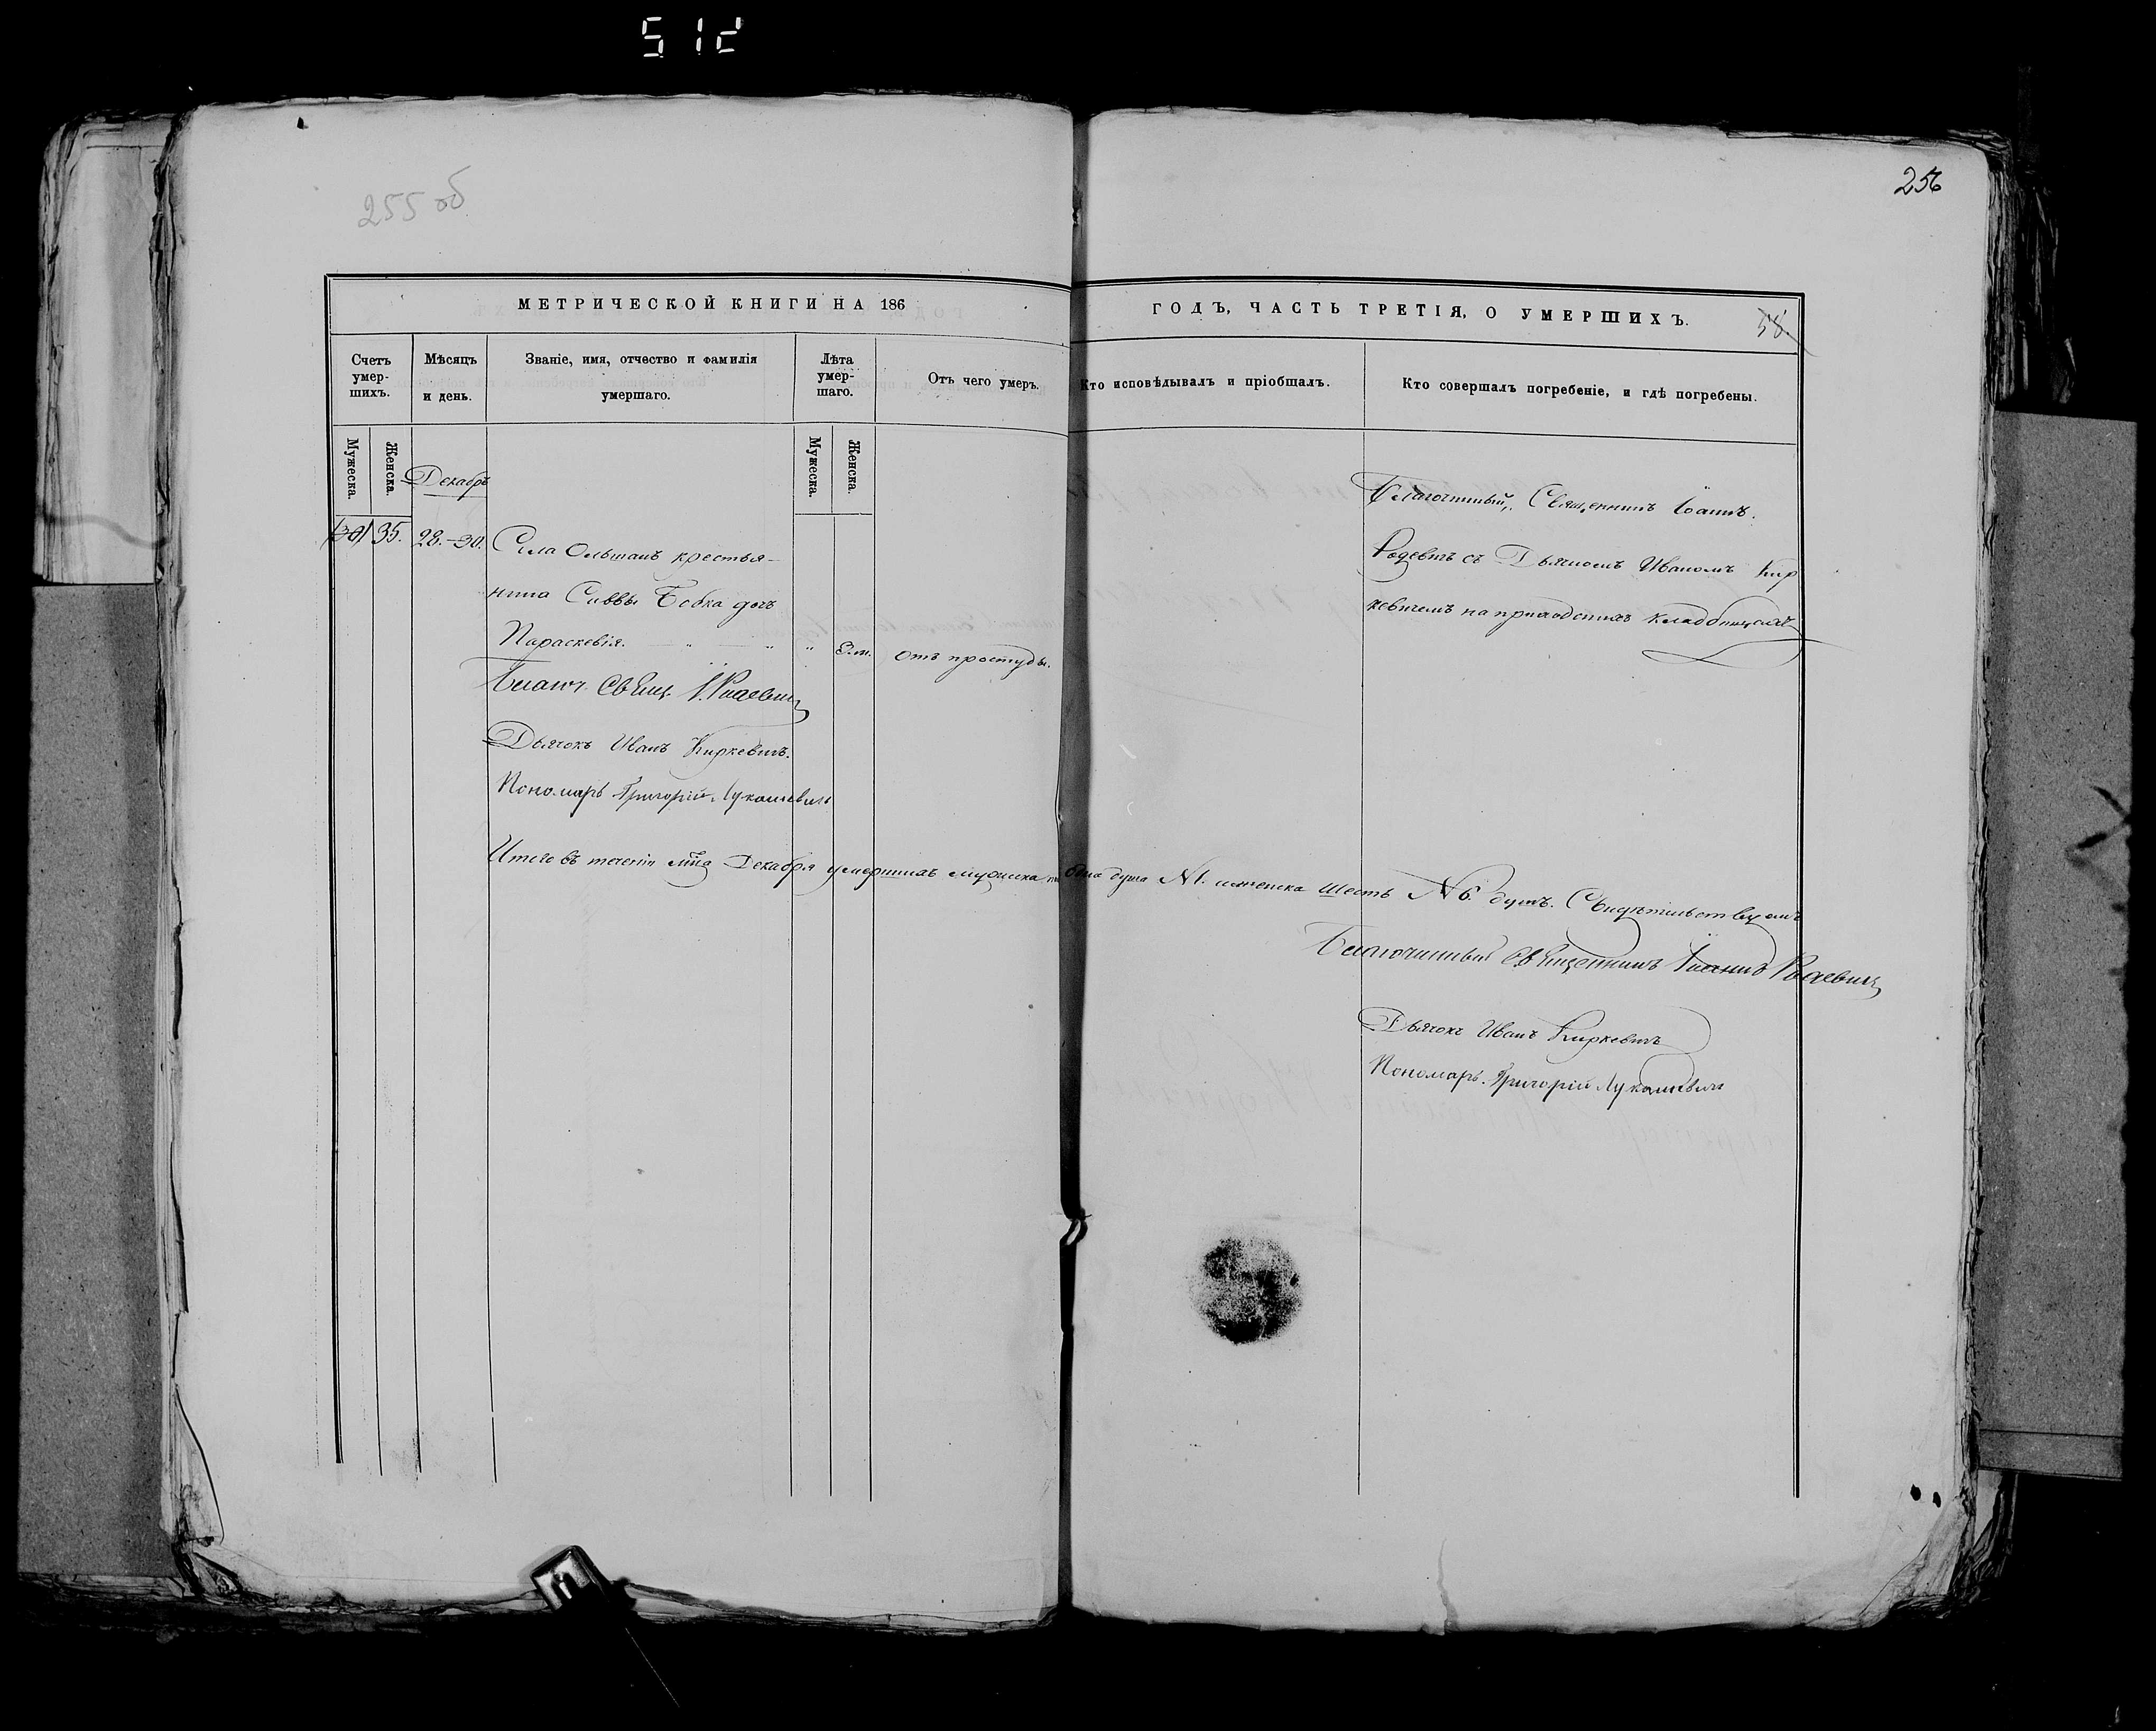 512
255 об
256
МЕТРИЧЕСКОЙ КНИГИ НА 186
ГОДЪ, ЧАСТЬ ТРЕТІЯ, О УМЕРШИХЪ.
58.
Счетъ умер-шихъ.
Мѣсяцъ и день.
Званіе, имя, отчество и фамилія умершаго.
Лѣта умер-шаго.
Отъ чего умеръ.
Кто исповѣдывалъ и пріобщалъ.
Кто совершалъ погребеніе, и гдѣ погребены.
Мужеска.
Женска.
Мужеска.
Женска.
Декабръ
35. 28.-30.
Села Ольшанъ крестья-
нина Саввы Бобка дочь
Параскевія. " " " 3.м. Отъ простуды.
Благочинный, Священникъ Іоаннъ
Родевичъ съ Дьячкомъ Иваномъ Кир
кевичемъ на приходскихъ кладбищахъ
Благоч. Свящ. І. Родевич
Дьячокъ Иванъ Киркевичъ.
Пономарь Григорій Лукашевичъ
Итого въ теченіи мца Декабря умершихъ мужеска одна душа №1. женска шесть №6. душъ. Свидѣтельствуемъ
Благочинный Священникъ Іоаннъ Родевич
Дьячокъ Иванъ Киркевичъ
Пономарь Григорій Лукашевичъ